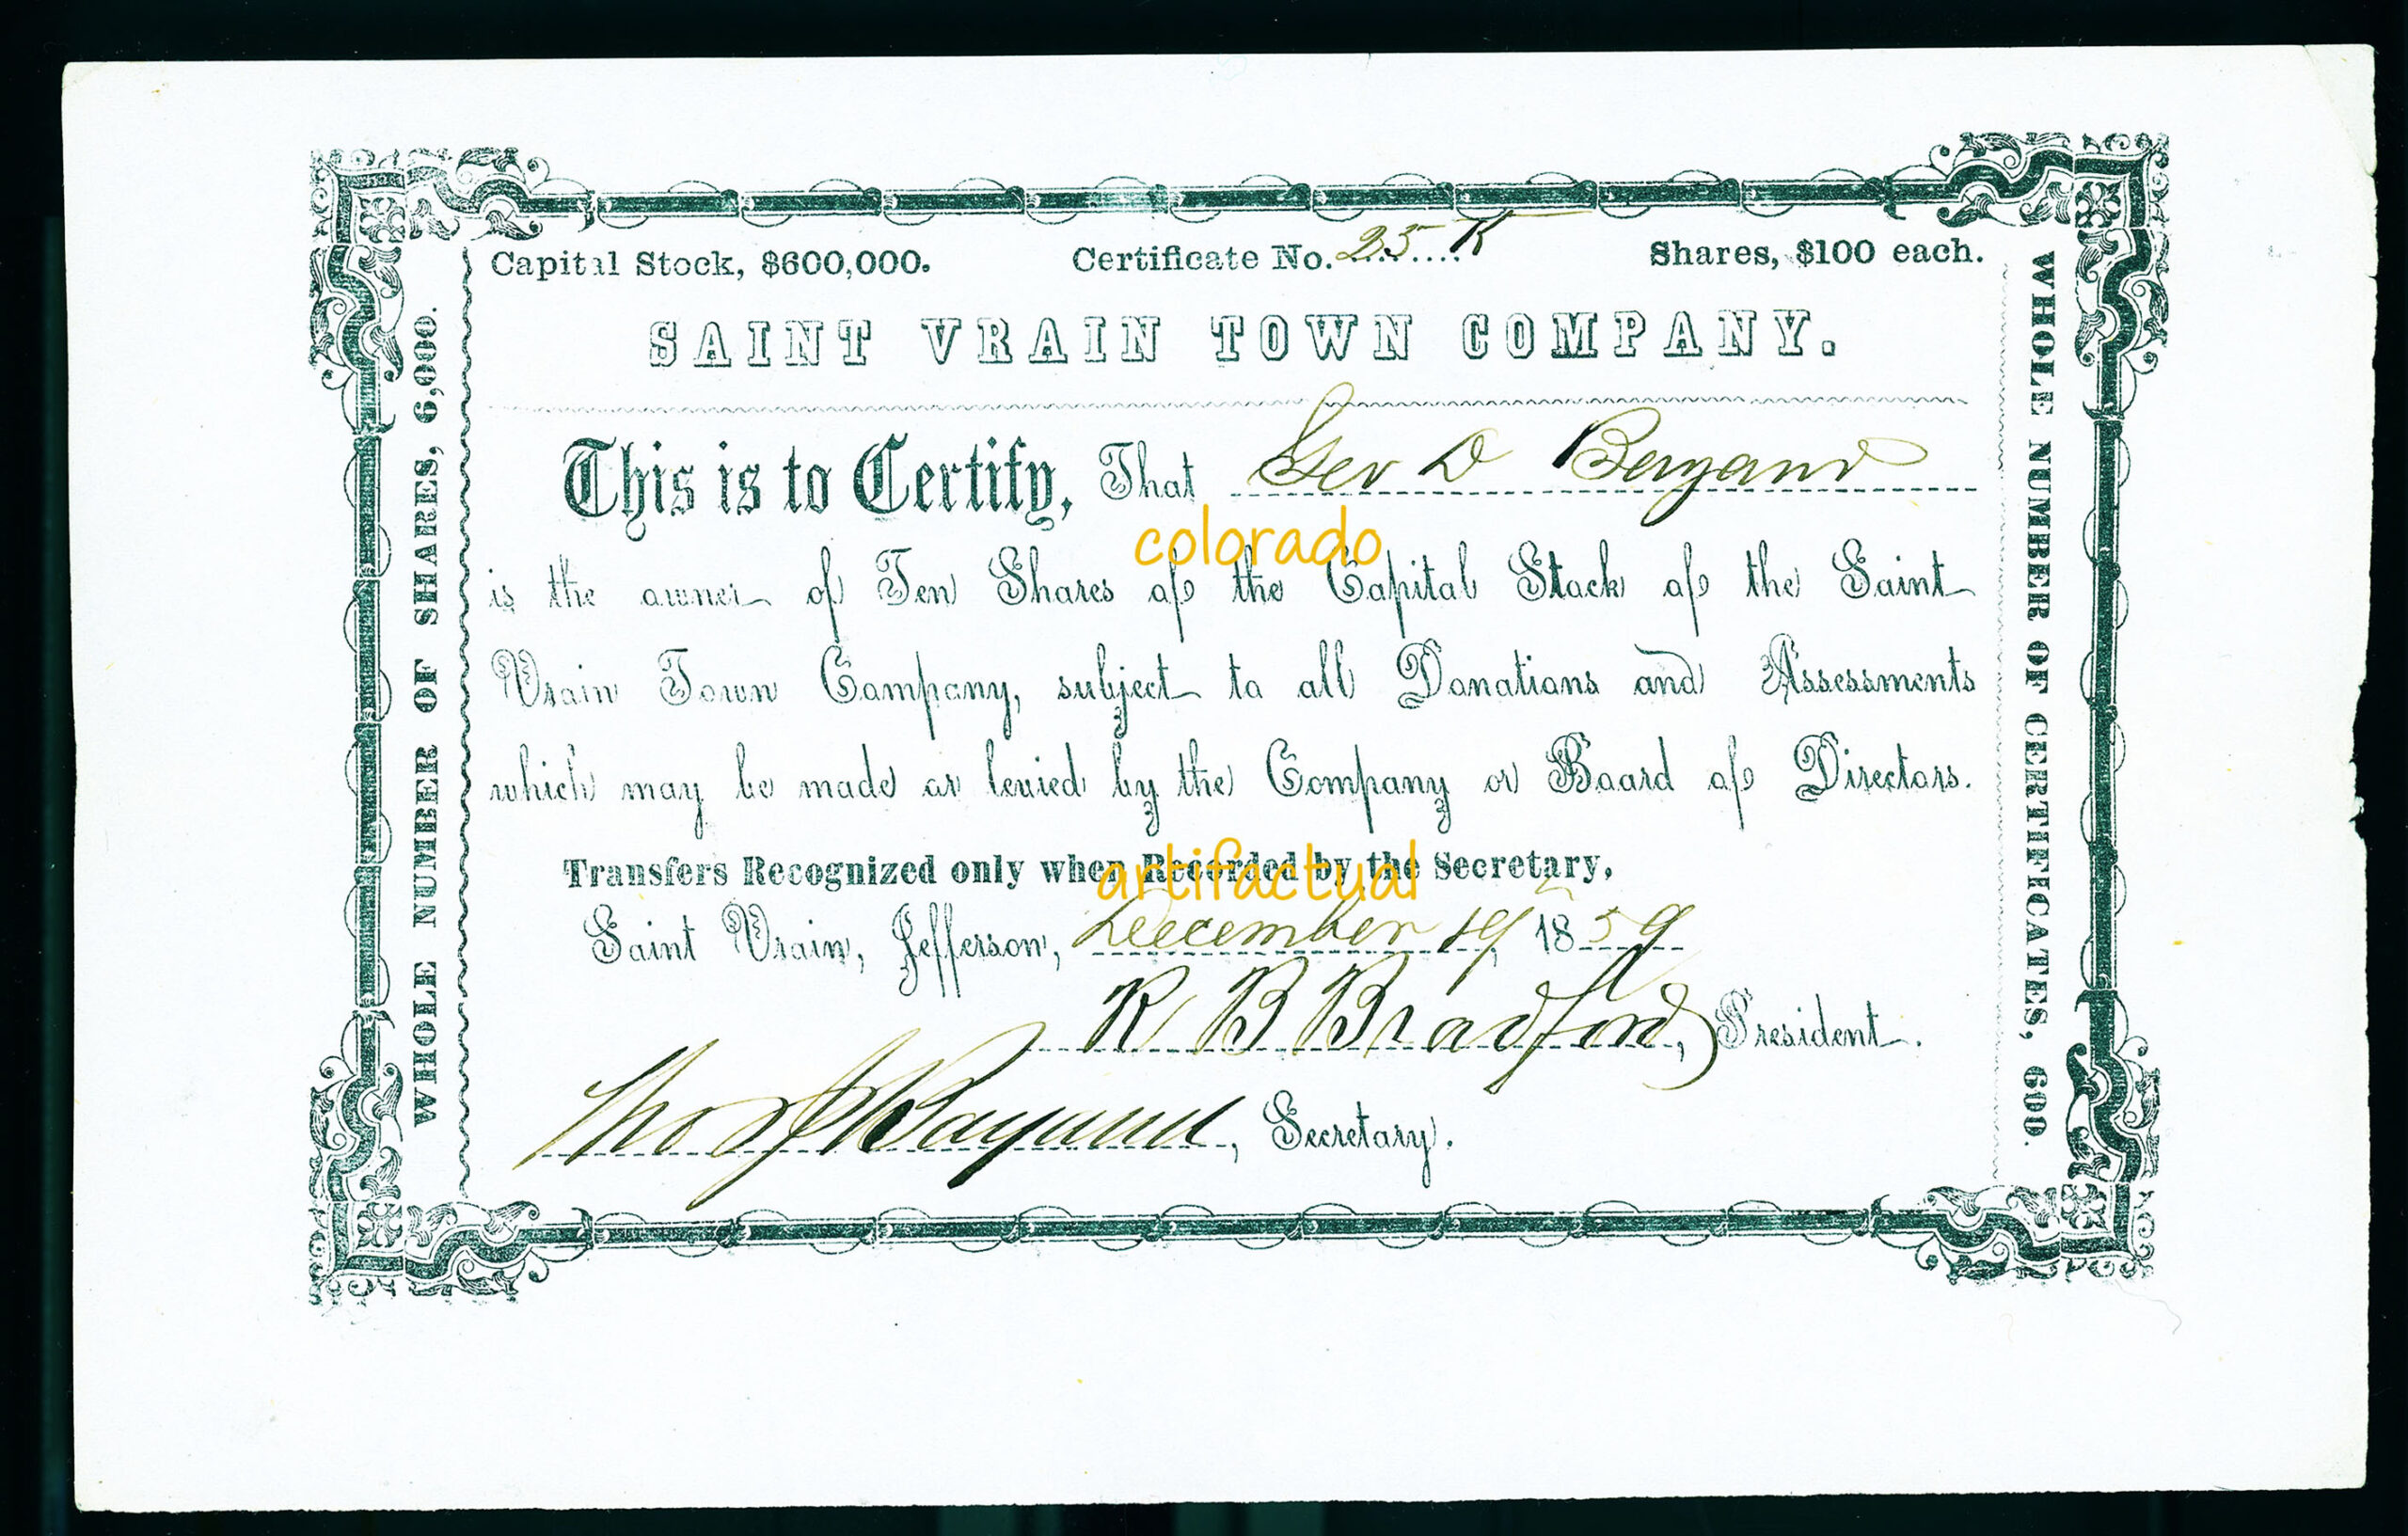 Capital Stock, $600,000. Certificate No. 25 K Shares, $100 each.
SAINT VRAIN TOWN COMPANY.
This is to Certify, That Geo D
colorado
is the owner of Ten Shares of the Capital Stock of the Saint
Vrain Town Company, subject to all Donations and Assessments
which may be made or levied by the Company or Board of Directors.
artifactual
Transfers Recognized only when Recorded by the Secretary,
Saint Vrain, Jefferson, December 19, 1859
R B Bradford, President.
Thos J Bayaud, Secretary.
WHOLE NUMBER OF SHARES, 6,000.
WHOLE NUMBER OF CERTIFICATES, 600.